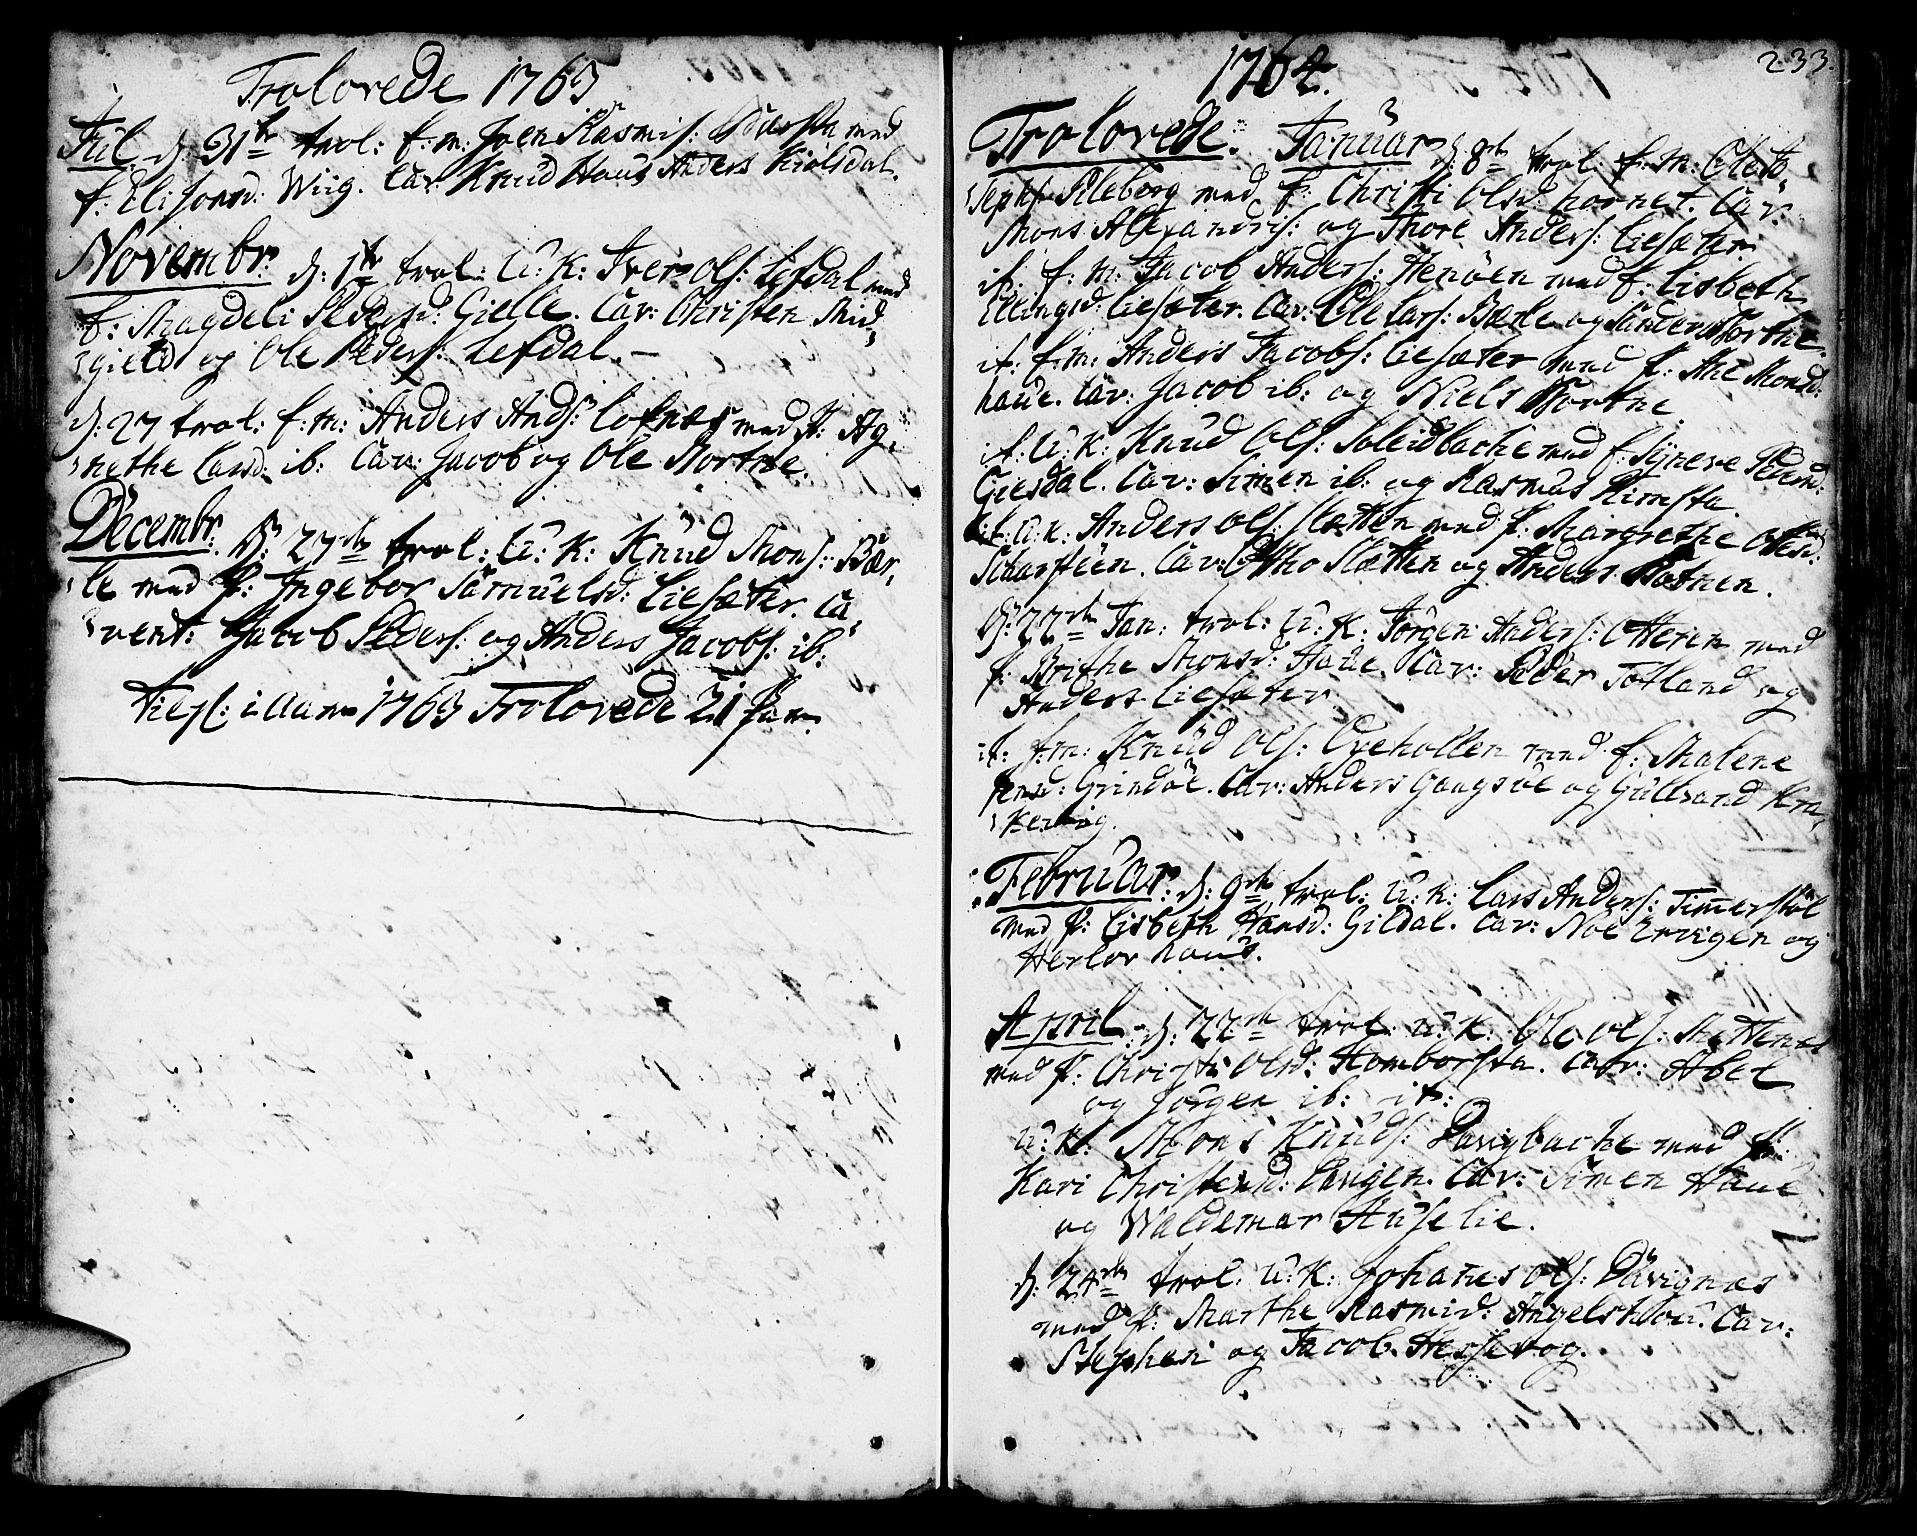 Trolovede 1763
Jul d: 31te trol: E: m: Joen Rasmis: med
f: Eli Jonsd: Wiig. Cav: Knud Haus Anders Kiølsdal.
Novembr: d: 1te trol: U: K: Iver Ols: Lefdal med
f: Magdeli Pedersd: Gielle. Cav: Christen Mid-
gield og Ole Peders: Lefdal. –
d: 27 trol: E: m: Anders Ands: lofnæs med f: Ag-
nethe Larsd: ib: Cav: Jacob og Ole Nortne.
Decembr: d: 27de trol: U: K: Knud Mons: Bær-
le med f: Ingebor Samuelsd: Liesæter. Ca-
vent: Jacob Peders: og Anders Jacobs: ib:
Tils: i Aaret 1763 Trolovede 21 Par.
233.
1764.
Trolovede. Januar d: 8de trol: E: m: Ole Jo-
seph: Pileborg med f: Christi Olsd: hornet. Cav:
Mons Alexanders: og Thore Anders: Liesæter.
it: E: m: Jacob Anders: Henøen med f: Lisbeth
Ellingsd: Liesæter. Cav: Ole Lars: Bærle og Anders Nortne.
it: E: m: Anders Jacobs: Liesæter med f: Ane Monsd:
haue. Cav: Jacob ib: og Niels Nortne
it: U: K: Knud Ols: Soleidbache med f: Synneve Pedersd:
Giesdal. Cav: Simen ib: og Rasmus Rimsta.
it: U: K: Anders Ols: Sletten med f: Margrethe Ottesd:
Skaarsteen. Cav: Ottho Sletten og Anders
d: 22de Jan: trol: U: K: Jørgen Anders: Otteren med
f: Brithe Monsd: Haue. Cav: Peder Totland og
Anders Liesæter.
it: E: m: Knud Ols: Øxehollen med f: Malene
Jensd: Grindøe. Cav: Anders Gangsøe og Gulbrand Kra-
kevog.
Februar: d: 9de trol: U: K: Lars Anders: Timerstøl
med f: Lisbeth Hansd: Gildal. Cav: Noe Ervigen og
Herlov haus.
April d: 22de trol: U: K: Ole Ols: Mættenæs
med f: Christi Olsd: Homborsta. Cav: Abel
og Jørgen ib: it:
U: K: Mons Knuds: Davigbache med f:
Kari Christensd: Davigen. Cav: Simen Haue
og Waldemar Huselie.
d: 24de trol: U: K: Johanes Ols: Davignæs
med f: Marthe Rasmisd: Angelskou. Cav:
Stephen og Jacob Hessevog.